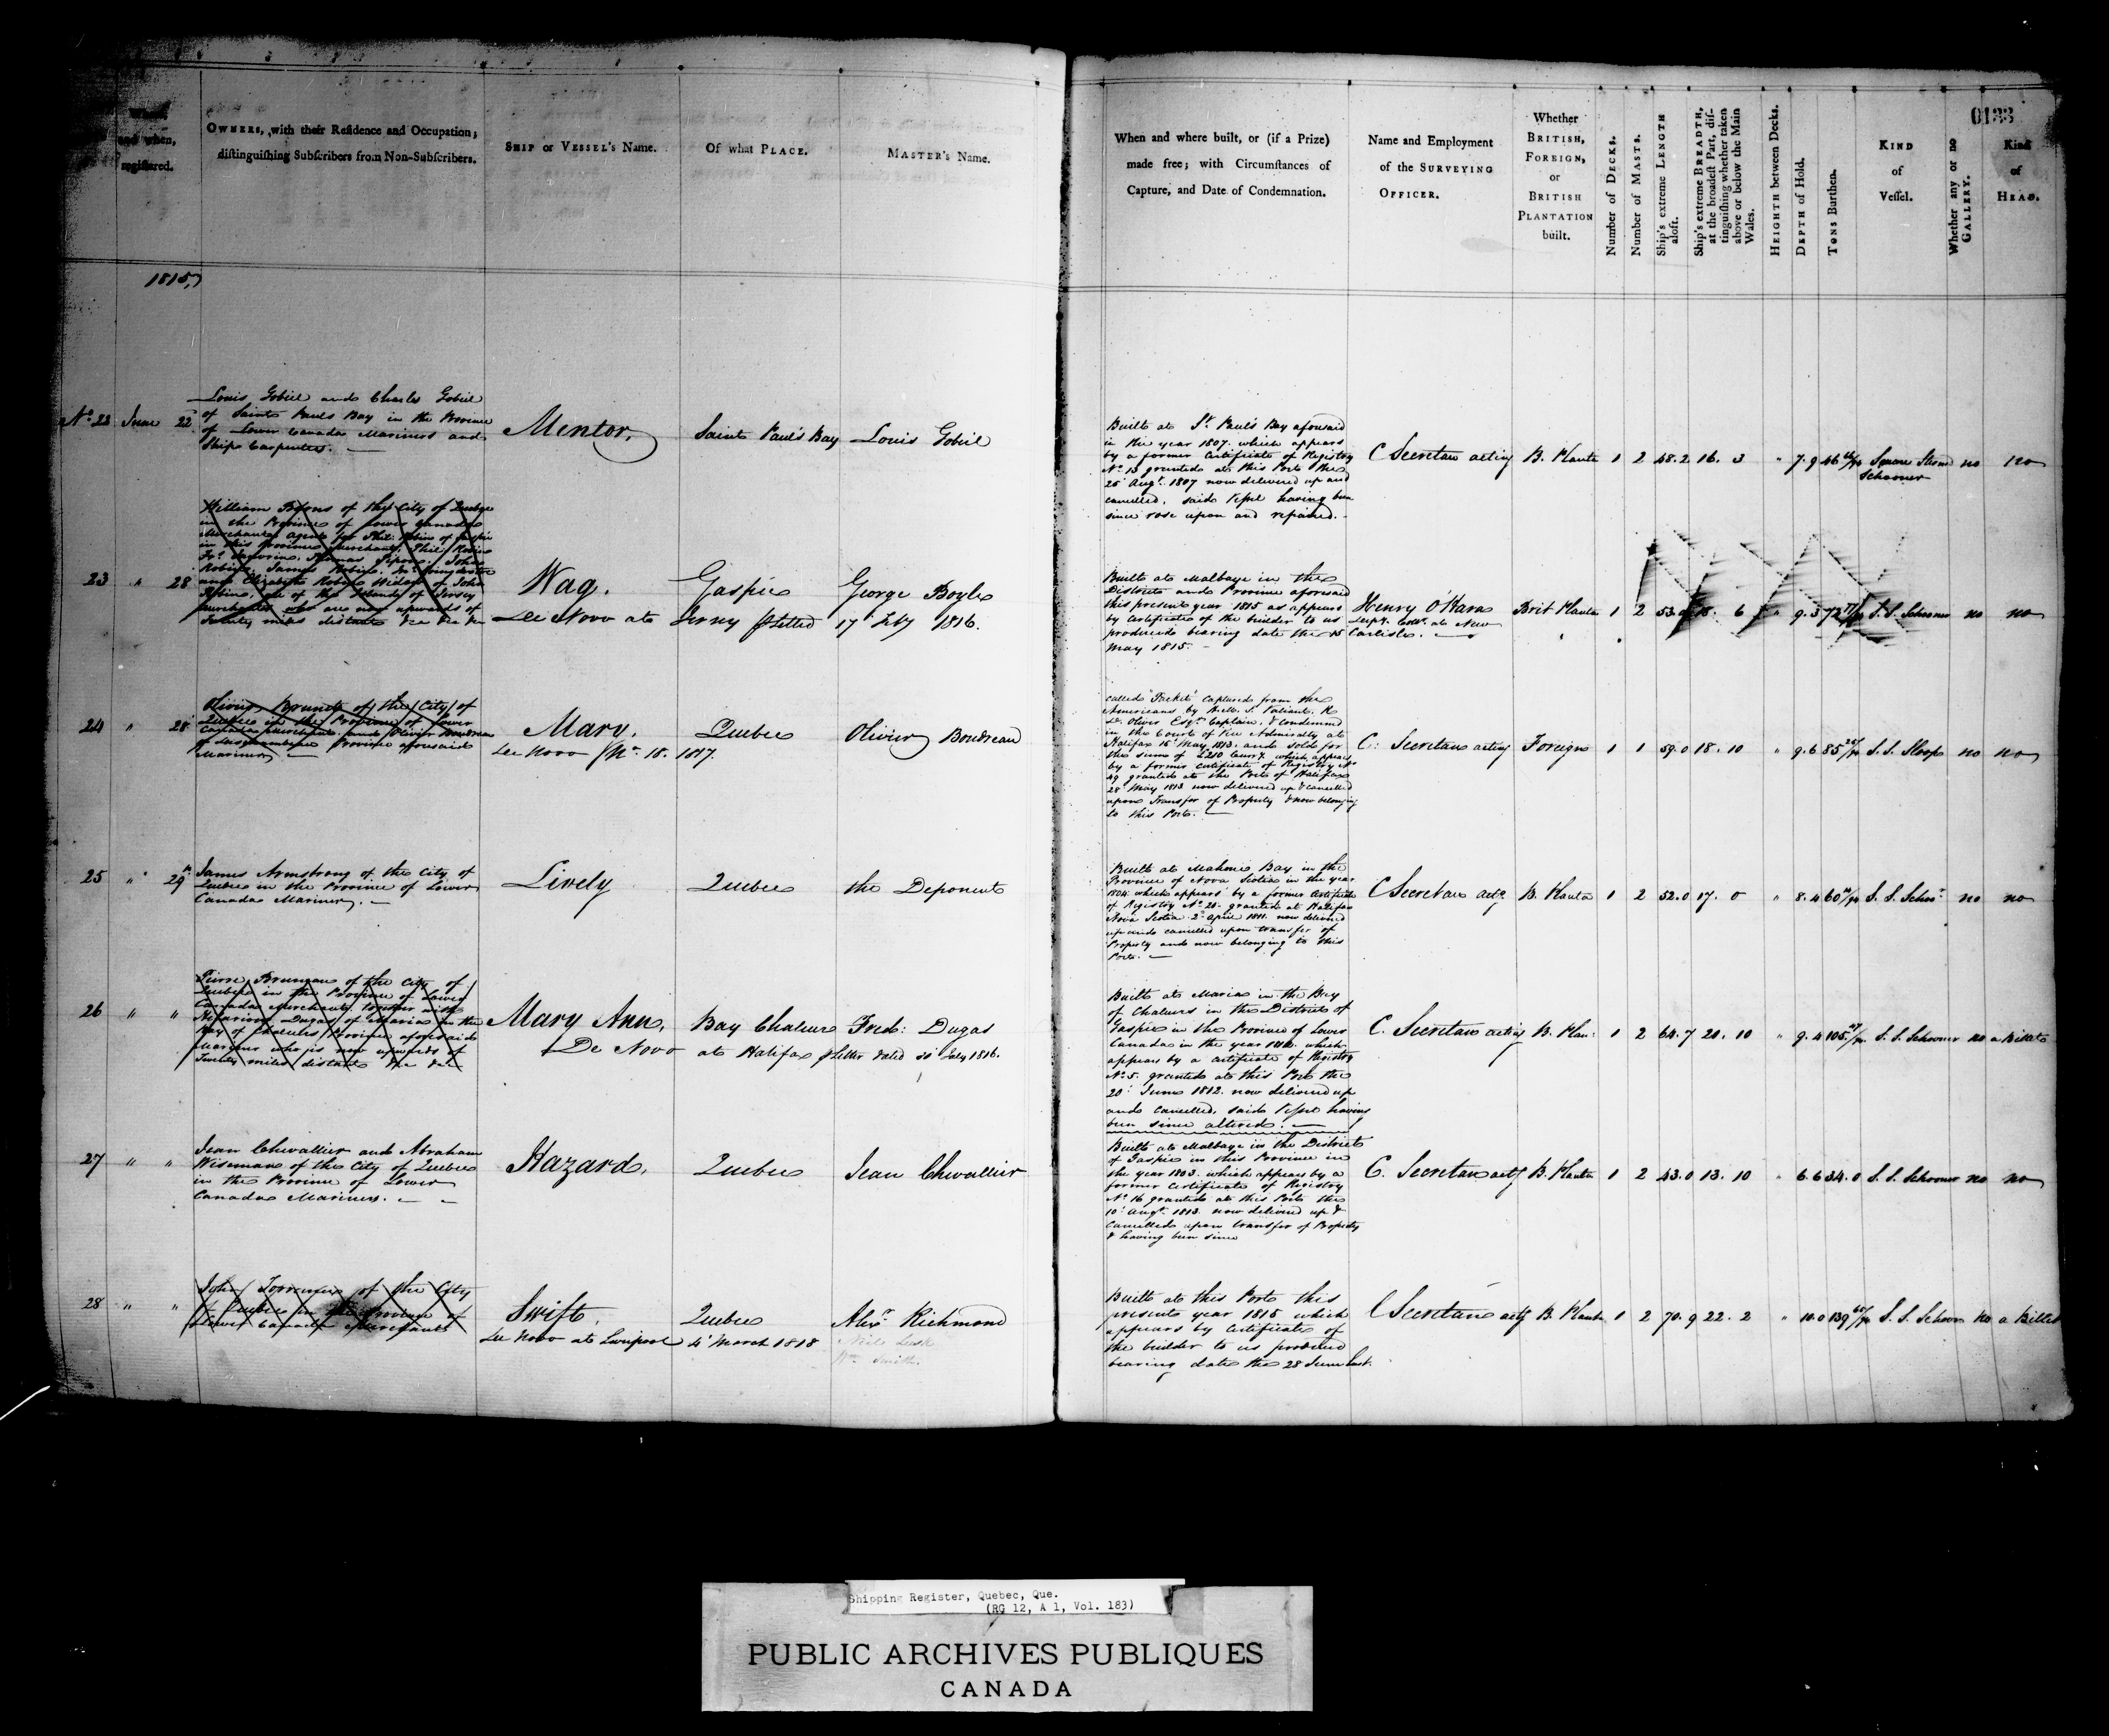 0133
Where,
and when,
registered.
OWNERS, with their Residence and Occupation;
distinguishing Subscribers from Non-Subscribers.
SHIP or VESSEL's Name.
Of what PLACE.
MASTER's Name.
When and where built, or (if a Prize)
made free; with Circumstances of
Capture, and Date of Condemnation.
Name and Employment
of the SURVEYING
OFFICER.
Whether
BRITISH,
FOREIGN,
or
BRITISH
PLANTATION
built.
Number of DECKS.
Number of MASTS.
Ship's extreme LENGTH
aloft.
Ship's extreme BREADTH,
at the broadest Part, dis-
tinguishing whether taken
above or below the Main
Wales.
HEIGHTH between Decks.
DEPTH of Hold.
TONS Burthen.
KIND
of
Vessel.
Whether any or no
GALLERY.
Kind
of
HEAD.
1815,
No. 22 June 22
Louis Gobiel and Charles Gobiel
of Saint Pauls Bay in the Province
of Lower Canada Mariners and
Ship Carpenters.
Mentor,
Saint Paul's Bay
Louis Gobiel
Built at St. Paul's Bay aforesaid
in the year 1807. which appears
by a former Certificate of Registry
No. 13 granted at this Port the
25 Augt. 1807 now delivered up and
cancelled, said Vessel having been
since rose upon and repaired.
C Secretan acting
B. Planta
1 2 48.2 16. 3 " 7.9 46
Square Sternd
Schooner
no no
23 " 28
William of the City of Quebec
in the Province of Lower Canada
Merchant agent for Phil: Robin of Gaspie
in this Province Merchant, Phil: Robin
Robin, James Robin,
and Elizabeth Robin Widow of John
Robin, all of the Island of Jersey
Merchants who are now upwards of
Twenty miles distant &c &c &c
Wag.
Gaspie
George Boyle
De Novo at Jersey Letter 17 1816.
Built at Malbaye in the
District and Province aforesaid
this present year 1815 as appears
by Certificate of the builder to us
produced bearing date the 15
May 1815.
Henry O'Hara
Depy. Collr. at New
Carlisle.
Brit Planta
1 2 53. 6 " 9.3 72
S. S. Schooner no no
24 " 28
Olivier Brunet of the City of
Quebec in the Province of Lower
Canada Merchant and Olivier Boudreau
Province aforesaid
Mariner
Mary.
Quebec
Olivier Boudreau
De Novo No. 18. 1817.
called "Packet" Captured from the
Americans by H.M. S. Valiant, R
D. Oliver Esqr. Captain, & condemned
in the Court of Vice Admiralty at
Halifax 15 May 1813. and sold for
the sum of £210 Curry. which appears
by a former Certificate of Registry No.
49 granted at the Port of Halifax
28 May 1813 now delivered up & cancelled
upon Transfer of Property & now belonging
to this Port.
C. Secretan acting
Foreign
1 1 59.0 18. 10 " 9.6 85
S. S. Sloop no no
25 " 29
James Armstrong of the City of
Quebec in the Province of Lower
Canada Mariner.
Lively
Quebec
the Deponent
Built at Mahone Bay in the
Province of Nova Scotia in the year
1804 which appears by a former Certificate
of Registry No. 20. granted at Halifax
Nova Scotia 2 April 1811. now delivered
up and cancelled upon transfer of
Property and now belonging to this
Port.
C Secretan actg.
B. Planta
1 2 52.0 17. 0 " 8.4 60
S. S. Schor. no no
26 " "
Pierre Bruneau of the City of
Quebec in the Province of Lower
Canada Merchant, together with
Dugas of Maria in the
Bay of Chaleurs Province aforesaid
Mariner who is now upwards of
Twenty miles distant &c &c
Mary Ann,
Bay Chaleurs
Fred: Dugas
De Novo at Halifax Letter dated 31 July 1816.
Built at Maria in the Bay
of Chaleurs in the District of
Gaspie in the Province of Lower
Canada in the year which
appears by a Certificate of Registry
No. 5. granted at this Port the
20 June 1812. now delivered up
and cancelled, said Vessel having
been since altered.
C. Secretan acting
B. Plan:
1 2 64.7 20. 10 " 9.4 105
S. S. Schooner no a Billet
27 " "
Jean Chevallier and Abraham
Wiseman of the City of Quebec
in the Province of Lower
Canada Mariners.
Hazard,
Quebec
Jean Chevallier
Built at Malbaye in the District
of Gaspie in this Province in
the year 1803. which appears by a
former Certificate of Registry
No. 16 granted at this Port the
10 Augt. 1813. now delivered up &
Cancelled upon transfer of Property
& having been since
C. Secretan actg
B. Planta
1 2 43.0 13. 10 " 6.6 34.0
S. S. Schooner no no
28 " "
John of the City
of Quebec in the Province of
Lower Canada Merchant
Swift,
Quebec
Alexr. Richmond
De Novo at Liverpool 4 March 1818
Neil
Wm Smith.
Built at this Port this
present year 1815 which
appears by Certificate of
the builder to us produced
bearing date the 28 June Inst.
C Secretan actg
B. Planta
1 2 70.9 22. 2 " 10.0 139
S. S. Schoonr no a Billet
Shipping Register, Quebec, Que.
(RG 12, A 1, Vol. 183)
PUBLIC ARCHIVES PUBLIQUES
CANADA